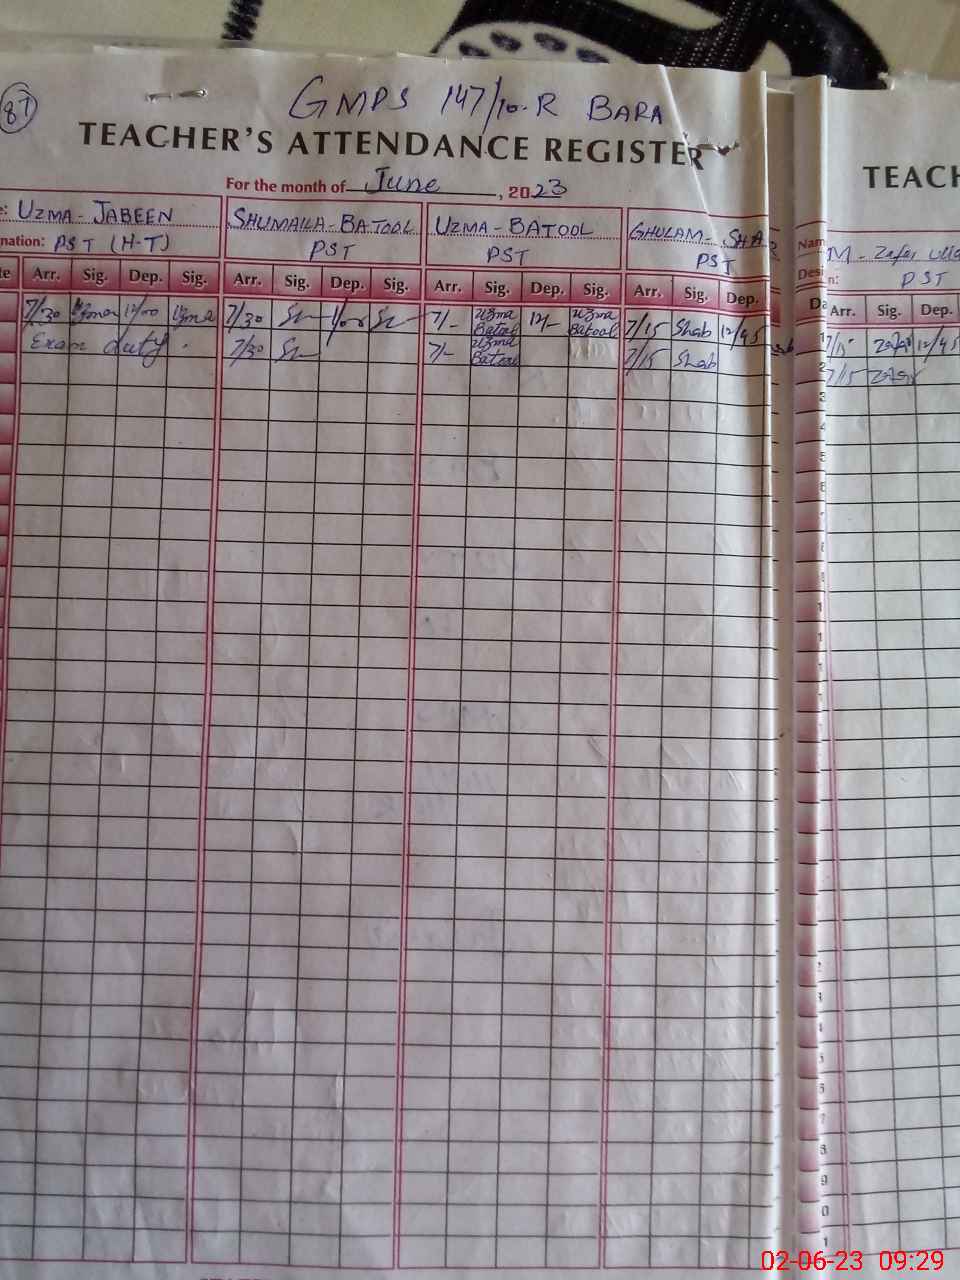 87
GMPS 147/10-R BARA
TEACHER'S ATTENDANCE REGISTER
For the month of June, 2023
e: UZMA - JABEEN SHUMAILA - BATOOL UZMA - BATOOL GHULAM - SHA
nation: PST (H-T) PST PST PST
te Arr. Sig. Dep. Sig. Arr. Sig. Dep. Sig. Arr. Sig. Dep. Sig. Arr. Sig. Dep.
7/30 Uzma 12/00 Uzma 7/30 7/- Uzma Batool 12/- Uzma Batool 7/15 Shab 12/45
Exam duty. 7/30 7/- Uzma Batool 7/15 Shab
TEACH
Nam M - Zafar Ulla
Desi n: PST
Da Arr. Sig. Dep.
1 7/15 Zafar 12/45
2 7/15 Zafar
3
4
5
6
02-06-23 09:29